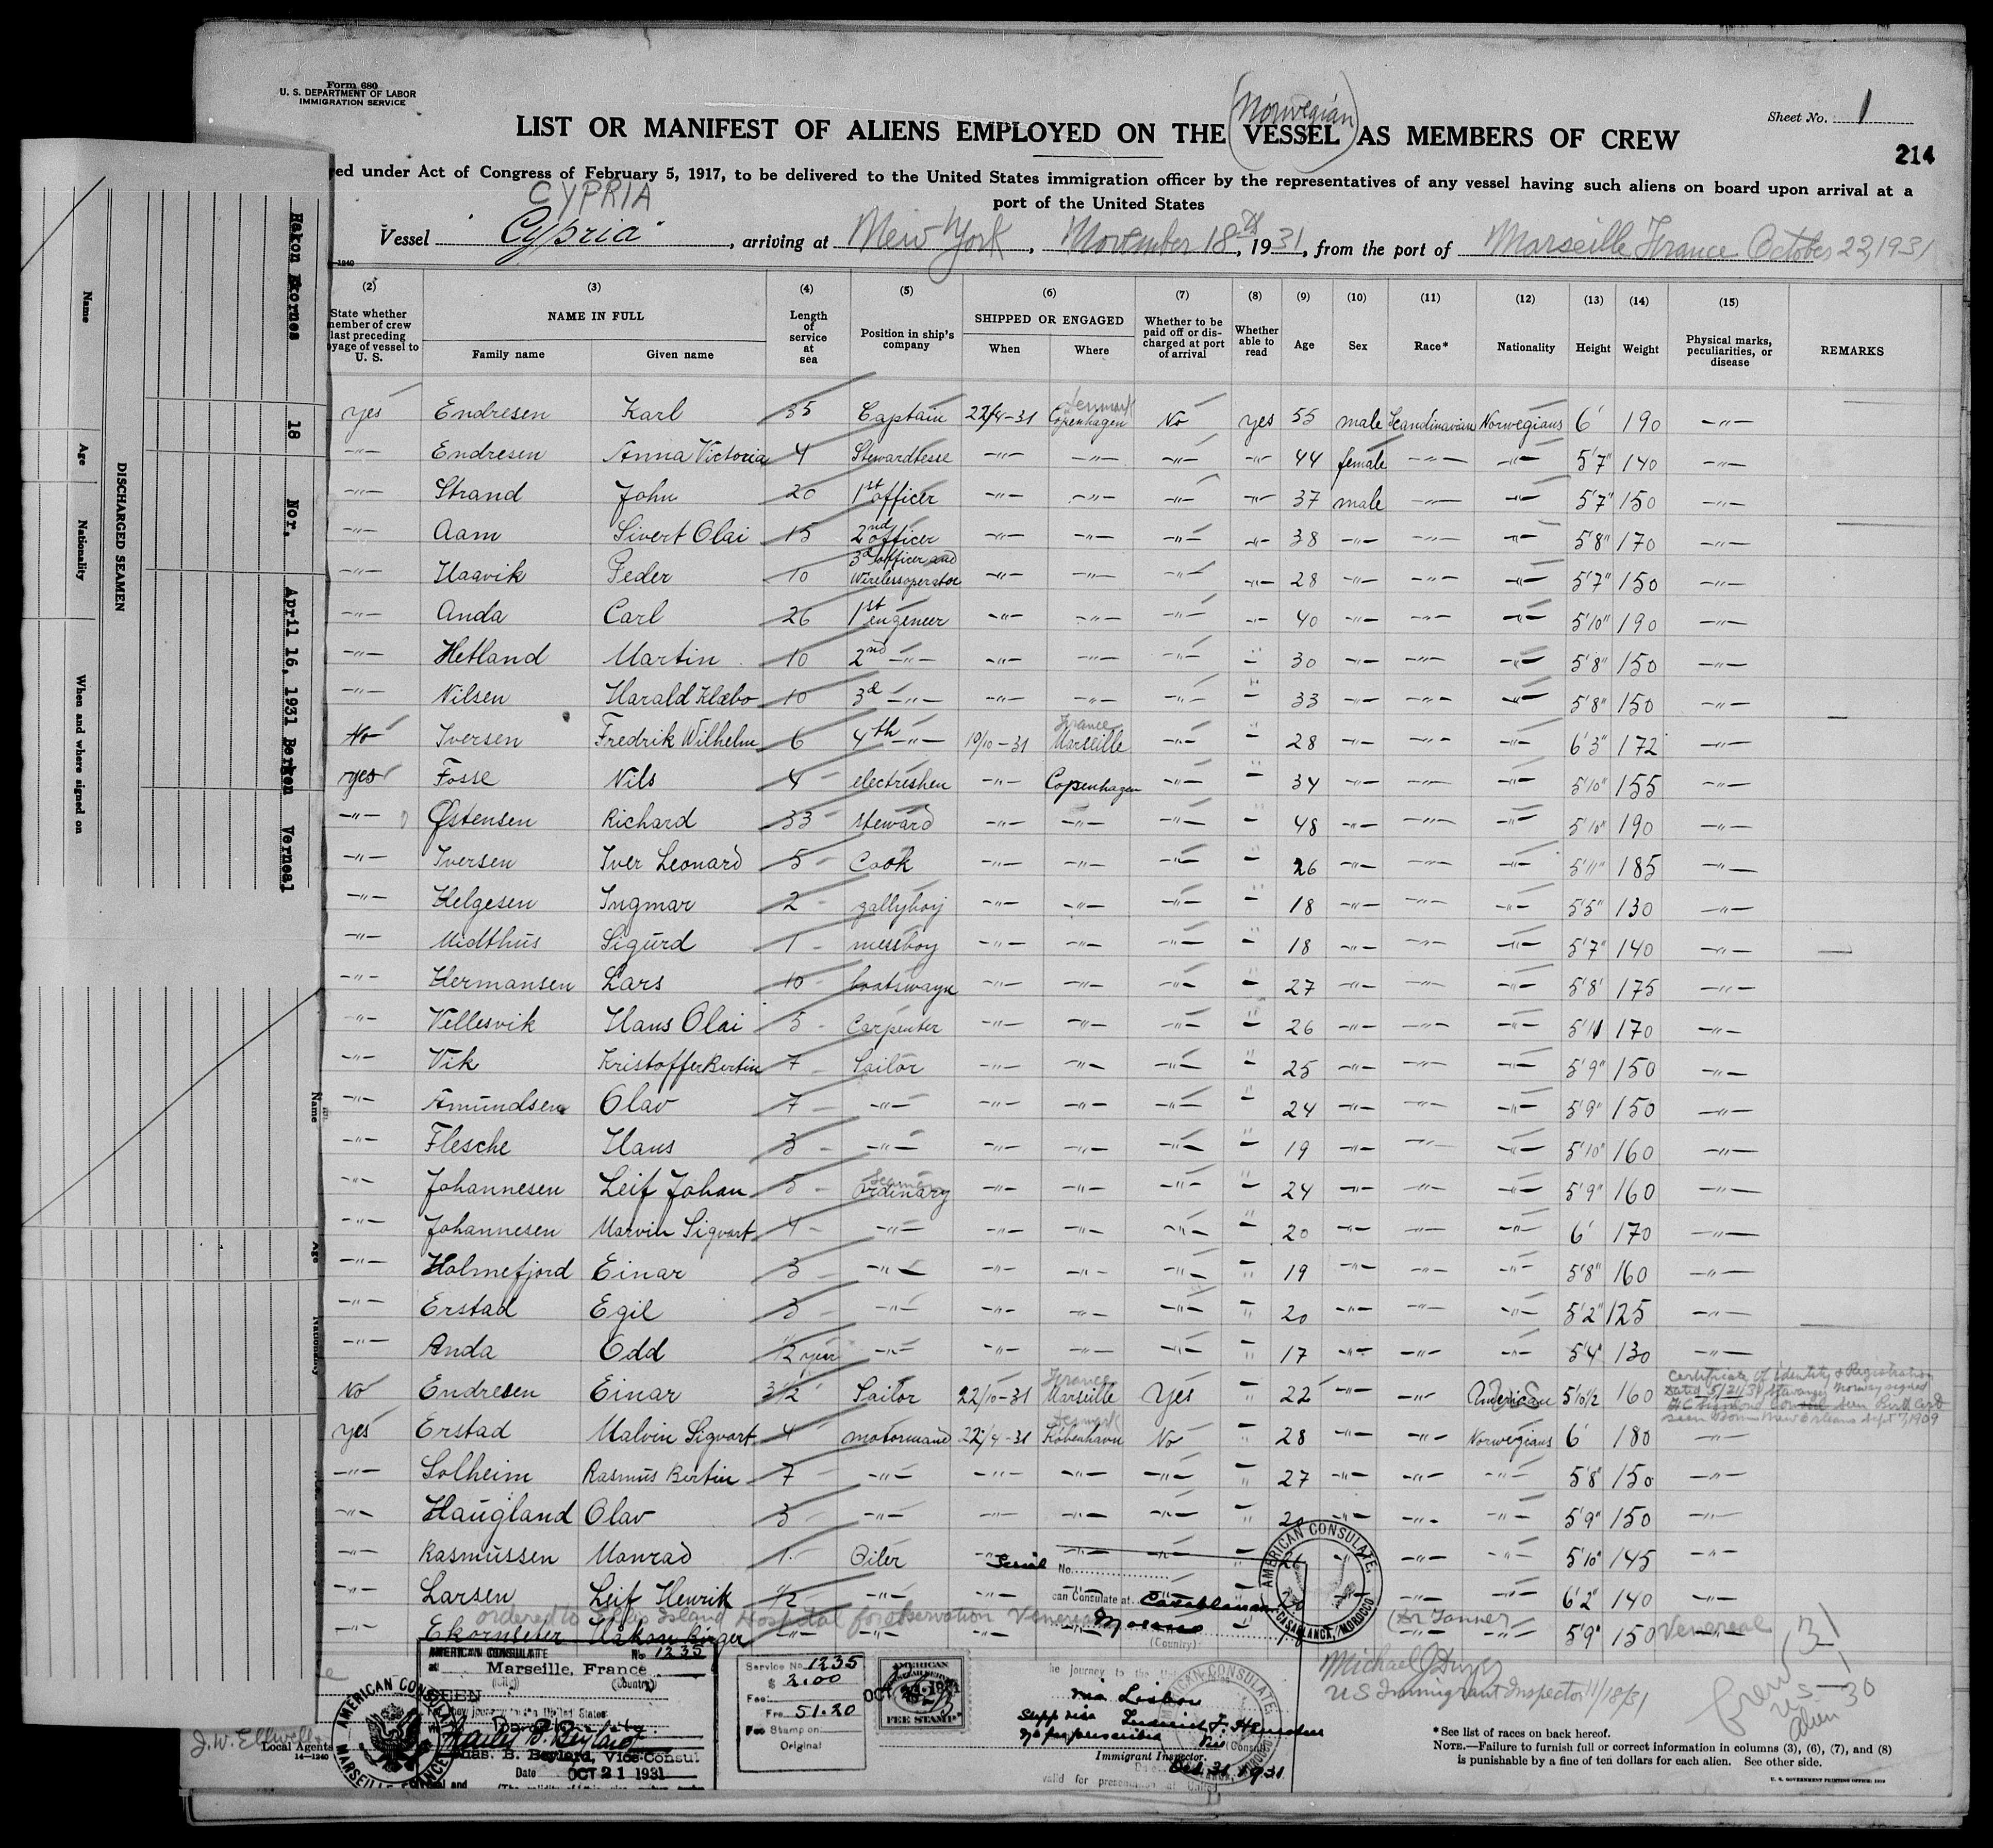 Form 680
U. S. DEPARTMENT OF LABOR
IMMIGRATION SERVICE
Sheet No. 1
(Norwegian)
LIST OR MANIFEST OF ALIENS EMPLOYED ON THE VESSEL AS MEMBERS OF CREW
214
ed under Act of Congress of February 5, 1917, to be delivered to the United States immigration officer by the representatives of any vessel having such aliens on board upon arrival at a
port of the United States
CYPRIA
Vessel "Cypria", arriving at New York, November 18th, 1931, from the port of Marseille France October 22, 1931
(2) (3) (4) (5) (6) (7) (8) (9) (10) (11) (12) (13) (14) (15)
State whether member of crew last preceding voyage of vessel to U. S.
NAME IN FULL
Family name Given name
Length of service at sea
Position in ship's company
SHIPPED OR ENGAGED
When Where
Whether to be paid off or discharged at port of arrival
Whether able to read
Age Sex Race* Nationality Height Weight
Physical marks, peculiarities, or disease
REMARKS
yes Endresen Karl 35 Captain 22/4-31 Denmark Copenhagen No yes 55 male Scandinavian Norwegians 6' 190 -"-
-"- Endresen Anna Victoria 4 Stewardesse -"- -"- -"- -"- 44 female -"- -"- 5'7" 140 -"-
-"- Strand John 20 1st officer -"- -"- -"- -"- 37 male -"- -"- 5'7" 150 -"-
-"- Aam Sivert Olai 15 2nd officer -"- -"- -"- -"- 38 -"- -"- -"- 5'8" 170 -"-
-"- Haavik Peder 10 3d officer and Wirelessoperator -"- -"- -"- -"- 28 -"- -"- -"- 5'7" 150 -"-
-"- Anda Carl 26 1st engeneer -"- -"- -"- -"- 40 -"- -"- -"- 5'10" 190 -"-
-"- Hetland Martin 10 2nd -"- -"- -"- -"- -"- 30 -"- -"- -"- 5'8" 150 -"-
-"- Nilsen Harald Klæbo 10 3d -"- -"- -"- -"- -"- 33 -"- -"- -"- 5'8" 150 -"-
No Iversen Fredrik Wilhelm 6 4th -"- 19/10-31 France Marseille -"- -"- 28 -"- -"- -"- 6'3" 172 -"-
yes Fosse Nils 4 electrishen -"- Copenhagen -"- -"- 34 -"- -"- -"- 5'10" 155 -"-
-"- Østensen Richard 33 steward -"- -"- -"- -"- 48 -"- -"- -"- 5'10" 190 -"-
-"- Iversen Iver Leonard 5 Cook -"- -"- -"- -"- 26 -"- -"- -"- 5'11" 185 -"-
-"- Helgesen Ingmar 2 gallyboy -"- -"- -"- -"- 18 -"- -"- -"- 5'5" 130 -"-
-"- Midthus Sigurd 1 messboy -"- -"- -"- -"- 18 -"- -"- -"- 5'7" 140 -"-
-"- Hermansen Lars 10 boatswayn -"- -"- -"- -"- 27 -"- -"- -"- 5'8' 175 -"-
-"- Vellesvik Hans Olai 5 Carpenter -"- -"- -"- -"- 26 -"- -"- -"- 5'11 170 -"-
-"- Vik Kristoffer Bertin 7 Sailor -"- -"- -"- -"- 25 -"- -"- -"- 5'9" 150 -"-
-"- Amundsen Olav 7 -"- -"- -"- -"- -"- 24 -"- -"- -"- 5'9" 150 -"-
-"- Flesche Hans 3 -"- -"- -"- -"- -"- 19 -"- -"- -"- 5'10" 160 -"-
-"- Johannesen Leif Johan 5 ordinary Seamen -"- -"- -"- -"- 24 -"- -"- -"- 5'9" 160 -"-
-"- Johannesen Marvin Sigvart 4 -"- -"- -"- -"- -"- 20 -"- -"- -"- 6' 170 -"-
-"- Holmefjord Einar 3 -"- -"- -"- -"- -"- 19 -"- -"- -"- 5'8" 160 -"-
-"- Erstad Egil 3 -"- -"- -"- -"- -"- 20 -"- -"- -"- 5'2" 125 -"-
-"- Anda Odd 1/2 year -"- -"- -"- -"- -"- 17 -"- -"- -"- 5'4" 130 -"-
No Endresen Einar 3 1/2 Sailor 22/10-31 France Marseille Yes -"- 22 -"- -"- American 5'10 1/2 160 Certificate of identity & Registration
dated 5/21/31 Stavanger Norway signed
Consul seen Birth Cert
seen Born New Orleans Sept 7, 1909
yes Erstad Malvin Sigvart 4 motormand 22/4-31 Denmark København No -"- 28 -"- -"- Norwegians 6' 180 -"-
-"- Solheim Rasmus Bertin 7 -"- -"- -"- -"- -"- 27 -"- -"- -"- 5'8" 150 -"-
-"- Haugland Olav 3 -"- -"- -"- -"- -"- 20 -"- -"- -"- 5'9" 150 -"-
-"- Rasmussen Monrad 1 Oiler -"- -"- -"- -"- -"- -"- -"- 5'10" 145 -"-
-"- Larsen Leif Henrik 1/2 -"- -"- -"- -"- -"- -"- -"- 6'2" 140 -"-
ordered to Ellis Island Hospital for observation Venereal (Dr Tanner)
-"- Håkon Birger -"- -"- -"- -"- -"- -"- 5'9" 150 Venereal
Michael J Dwyer
US Immigrant Inspector 11/18/31
Crew 31
US 1
Alien 30
AMERICAN CONSULATE No 1235
at Marseille, France
(City) (Country)
SEEN
For the journey to the United States
Chas. B. Beylard, Vice-Consul
Date OCT 21 1931
AMERICAN CONSULATE MARSEILLE, FRANCE
Service No. 1235
$ 2.00
Fee:
Frs. 51.20
Fee Stamp on
Original
AMERICAN
FEE STAMP
Serial No.
can Consulate at Casablanca
Morocco
(Country)
AMERICAN CONSULATE, CASABLANCA, MOROCCO
he journey to the United
via Lisbon
Supp visa
No fee prescribed
Vice Consul
Immigrant Inspector.
Date Oct. 31 1931
AMERICAN CONSULATE
J. W. Ellwell
Local Agents
14—1240
*See list of races on back hereof.
NOTE.—Failure to furnish full or correct information in columns (3), (6), (7), and (8)
is punishable by a fine of ten dollars for each alien. See other side.
U. S. GOVERNMENT PRINTING OFFICE: 1929
DISCHARGED SEAMEN
Name Age Nationality When and where signed on
Hakon Ekornes 18 Nor. April 16, 1931 Bergen Verneal
Name Age Nationality